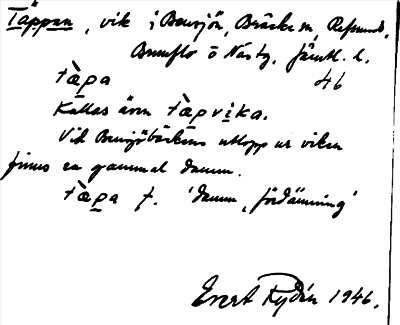 Täppan, vik i Bensjön, Bräcke sn, Refsunds,
Brunflo o Näsby, Jämtl. l.
tàpa 46
Kallas även tàpvika.
Vid Bensjöbäckens utlopp ur viken
finns en gammal damm.
tàpa f. 'damm, fördämning'
Evert Rydén 1946.